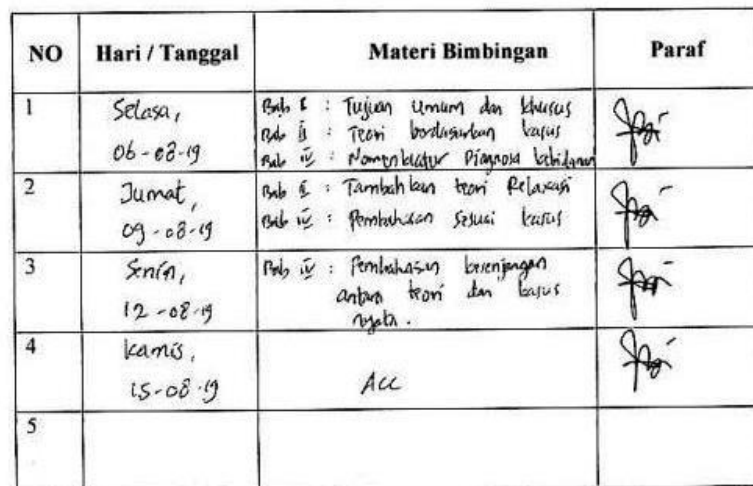 NO Hari / Tanggal Materi Bimbingan Paraf
1 Selasa, Bab I : Tujuan Umum dan khusus
Bab II : Teori berdasarkan kasus
06-08-19 Bab IV : Nomenklatur Diagnosa kebidanan
2 Jumat, Bab II : Tambahkan teori Relaxasi
09-08-19 Bab IV : Pembahasan sesuai kasus
3 Senin, Bab IV : Pembahasan kesenjangan
12-08-19 antara teori dan kasus
nyata.
4 Kamis,
15-08-19 Acc
5